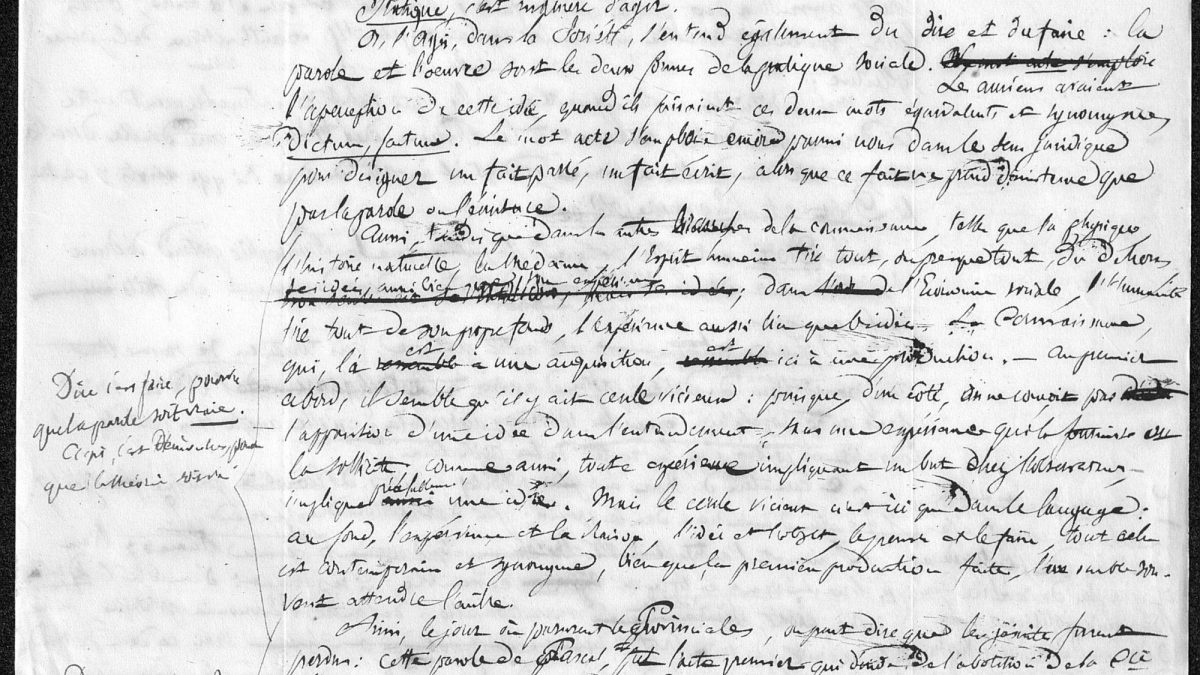 Pratique, c'est manière d'agir.
Or, l'agir, dans la Société, s'entend également du dire et du faire : la
parole et l'oeuvre sont les deux formes de la pratique sociale.
Les anciens avaient
l'aperception de cette idée, quand ils faisaient ces deux mots équivalents et synonymes,
Dictum, factum. Le mot acte s'emploie encore parmi nous dans le sens juridique
pour désigner un fait passé, un fait écrit, alors que ce fait ne prend d'existence que
par la parole ou l'écriture.
Aussi, tandis que dans les autres branches de la connaissance, telles que la physique,
l'histoire naturelle, la médecine, l'Esprit humain tire tout, ou presque tout, du dehors,
ses idées, aussi bien que son expérience; dans l'Economie sociale, l'Humanité
tire tout de son propre fonds, l'expérience aussi bien que l'idée. La Connaissance,
qui, là est une acquisition, est ici une production. — Au premier
abord, il semble qu'il y ait cercle vicieux : puisque, d'un côté, on ne conçoit pas
l'apparition d'une idée dans l'entendement, sans une expérience qui la
la sollicite, comme aussi, toute expérience impliquant un but chez l'observateur
implique une idée. Mais le cercle vicieux n'est ici que dans le langage :
au fond, l'expérience et la Raison, l'idée et l'objet, le penser et le faire, tout cela
est contemporain et synonyme, bien que, la première production faite, l'une semble sou-
vent attendre l'autre.
Ainsi, le jour où parurent les Provinciales, on peut dire que les jésuites furent
perdus : cette parole de Pascal, fut l'acte premier qui de l'abolition de la Cie
Dire c'est faire, pourvu
que la parole soit vraie.